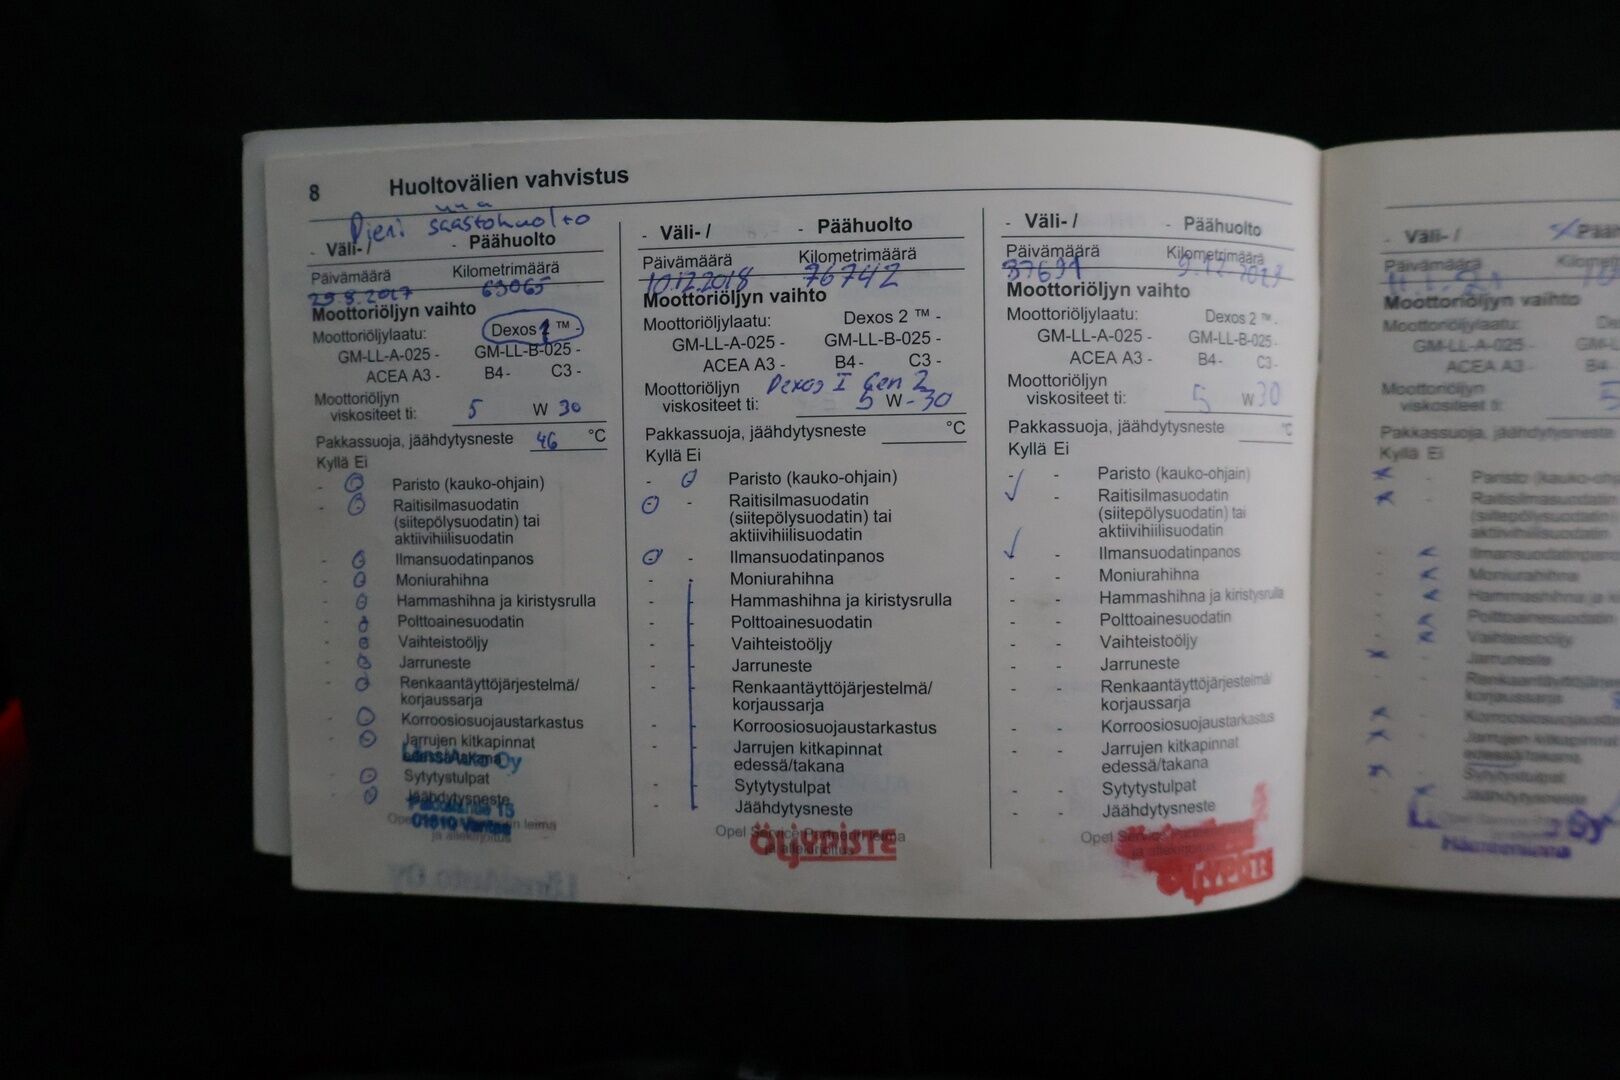 8 Huoltovälien vahvistus
Pieni
säästöhuolto
- Väli- / - Päähuolto
Päivämäärä Kilometrimäärä
29.8.2017 63065
Moottoriöljyn vaihto
Moottoriöljylaatu: Dexos 1 ™ -
GM-LL-A-025 - GM-LL-B-025 -
ACEA A3 - B4- C3 -
Moottoriöljyn
viskositeet ti: 5 W 30
Pakkassuoja, jäähdytysneste 46 °C
Kyllä Ei
- Paristo (kauko-ohjain)
- Raitisilmasuodatin
(siitepölysuodatin) tai
aktiivihiilisuodatin
- Ilmansuodatinpanos
- Moniurahihna
- Hammashihna ja kiristysrulla
- Polttoainesuodatin
- Vaihteistoöljy
- Jarruneste
- Renkaantäyttöjärjestelmä/
korjaussarja
- Korroosiosuojaustarkastus
- Jarrujen kitkapinnat
edessä/takana
LänsiAuto Oy
- Sytytystulpat
- Jäähdytysneste
15
01610 Vantaa
leima
ja allekirjoitus
- Väli- / - Päähuolto
Päivämäärä Kilometrimäärä
10.12.2018 76742
Moottoriöljyn vaihto
Moottoriöljylaatu: Dexos 2 ™ -
GM-LL-A-025 - GM-LL-B-025 -
ACEA A3 - B4- C3 -
Moottoriöljyn Dexos I Gen 2
viskositeet ti: 5 W - 30
Pakkassuoja, jäähdytysneste °C
Kyllä Ei
- Paristo (kauko-ohjain)
- Raitisilmasuodatin
(siitepölysuodatin) tai
aktiivihiilisuodatin
- Ilmansuodatinpanos
- - Moniurahihna
- - Hammashihna ja kiristysrulla
- - Polttoainesuodatin
- - Vaihteistoöljy
- - Jarruneste
- - Renkaantäyttöjärjestelmä/
korjaussarja
- - Korroosiosuojaustarkastus
- - Jarrujen kitkapinnat
edessä/takana
- - Sytytystulpat
- - Jäähdytysneste
Opel Service Partnerin leima
ja allekirjoitus
ÖLJYPISTE
- Väli- / - Päähuolto
Päivämäärä Kilometrimäärä
Moottoriöljyn vaihto
Moottoriöljylaatu: Dexos 2 ™ -
GM-LL-A-025 - GM-LL-B-025 -
ACEA A3 - B4- C3 -
Moottoriöljyn
viskositeet ti: 5 W 30
Pakkassuoja, jäähdytysneste °C
Kyllä Ei
- - Paristo (kauko-ohjain)
✓ - Raitisilmasuodatin
(siitepölysuodatin) tai
aktiivihiilisuodatin
✓ - Ilmansuodatinpanos
- - Moniurahihna
- - Hammashihna ja kiristysrulla
- - Polttoainesuodatin
- - Vaihteistoöljy
- - Jarruneste
- - Renkaantäyttöjärjestelmä/
korjaussarja
- - Korroosiosuojaustarkastus
- - Jarrujen kitkapinnat
edessä/takana
- - Sytytystulpat
- - Jäähdytysneste
Opel Service
ja allekirjoitus
- Väli- /
Päivämäärä
Moottoriöljyn vaihto
Moottoriöljylaatu:
GM-LL-A-025 -
ACEA A3 -
Moottoriöljyn
viskositeet ti: 5
Pakkassuoja, jäähdytysneste
Kyllä Ei
Paristo
Raitisilmasuodatin
(siitepölysuodatin)
aktiivihiilisuodatin
Ilmansuodatinpanos
Moniurahihna
Hammashihna ja
Polttoainesuodatin
Vaihteistoöljy
Jarruneste
korjaussarja
Jarrujen kitkapinnat
edessä/takana
Sytytystulpat
Jäähdytysneste
Oy
Hämeenlinna